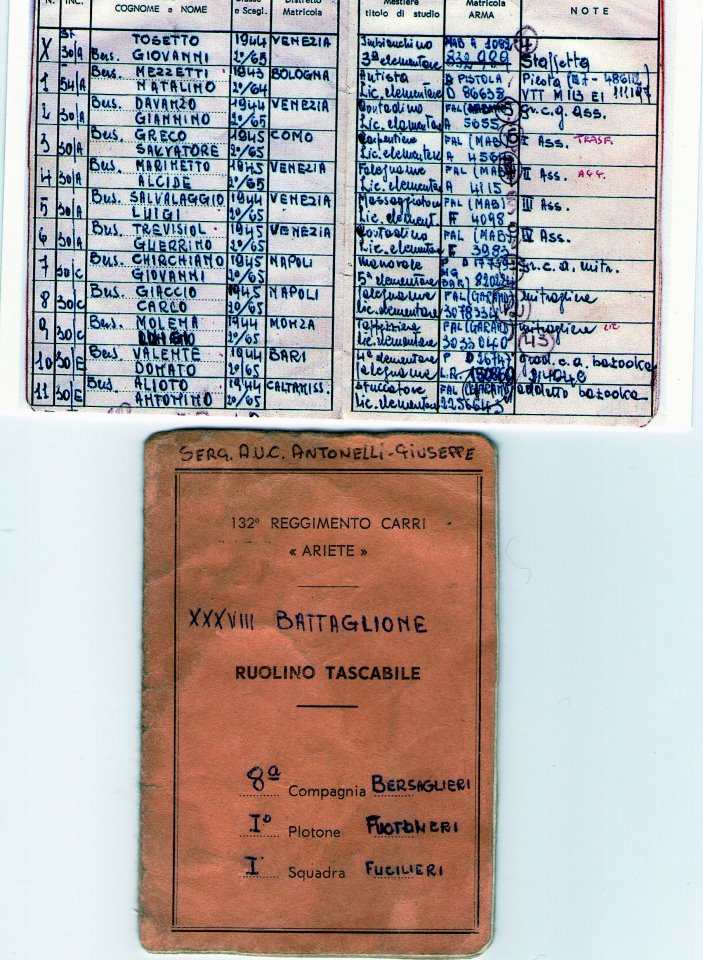 N. INC. COGNOME e NOME e Scagl. Distretto Matricola Mestiere titolo di studio Matricola ARMA NOTE
X 30/A Bers. TOSETTO GIOVANNI 1944 2°/65 VENEZIA Imbianchino 3ª elementare MAB A Staffetta
1 54/A Bers. MEZZETTI NATALINO 1943 2°/64 BOLOGNA Autista Lic. elementare PISTOLA D 86638 VTT M113 EI
2 30/A Bers. DAVANZO GIANNINO 1944 2°/65 VENEZIA Contadino Lic. elementare FAL A 5655 gr. c. g. Ass.
3 30/A Bers. GRECO SALVATORE 1945 2°/65 COMO Lic. elementare FAL (MAB) A I Ass. TRASF.
4 30/A Bers. MARINETTO ALCIDE 1945 2°/65 VENEZIA Falegname Lic. elementare FAL (MAB) A 4115 II Ass.
5 30/A Bers. SALVALAGGIO LUIGI 1944 2°/65 VENEZIA Lic. element. FAL (MAB) F 4098 III Ass.
6 30/A Bers. TREVISIOL GUERRINO 1945 2°/65 VENEZIA Contadino Lic. elementare FAL (MAB) F IV Ass.
7 30/C Bers. CHIRCHIANO GIOVANNI 1945 2°/65 NAPOLI manovale 5ª elementare MG gr. c. a. mitr.
8 30/C Bers. GIACCIO CARLO 1945 2°/65 NAPOLI Falegname Lic. elementare FAL (GARAND) mitragliere
9 30/C Bers. MOLENA 1944 2°/65 MONZA Lic. elementare FAL (GARAND) 3033040 mitragliere (43)
10 30/E Bers. VALENTE DONATO 1944 2°/65 BARI 4ª elementare falegname L.R. c. a. bazooka
11 30/E Bers. ALIOTO ANTONINO 1944 2°/65 CALTANISS. stuccatore Lic. elementare FAL (GARAND) 2256645 addetto bazooka
SERG. A.U.C. ANTONELLI-GIUSEPPE
132° REGGIMENTO CARRI
« ARIETE »
XXXVIII BATTAGLIONE
RUOLINO TASCABILE
8ª Compagnia BERSAGLIERI
I° Plotone
I Squadra FUCILIERI